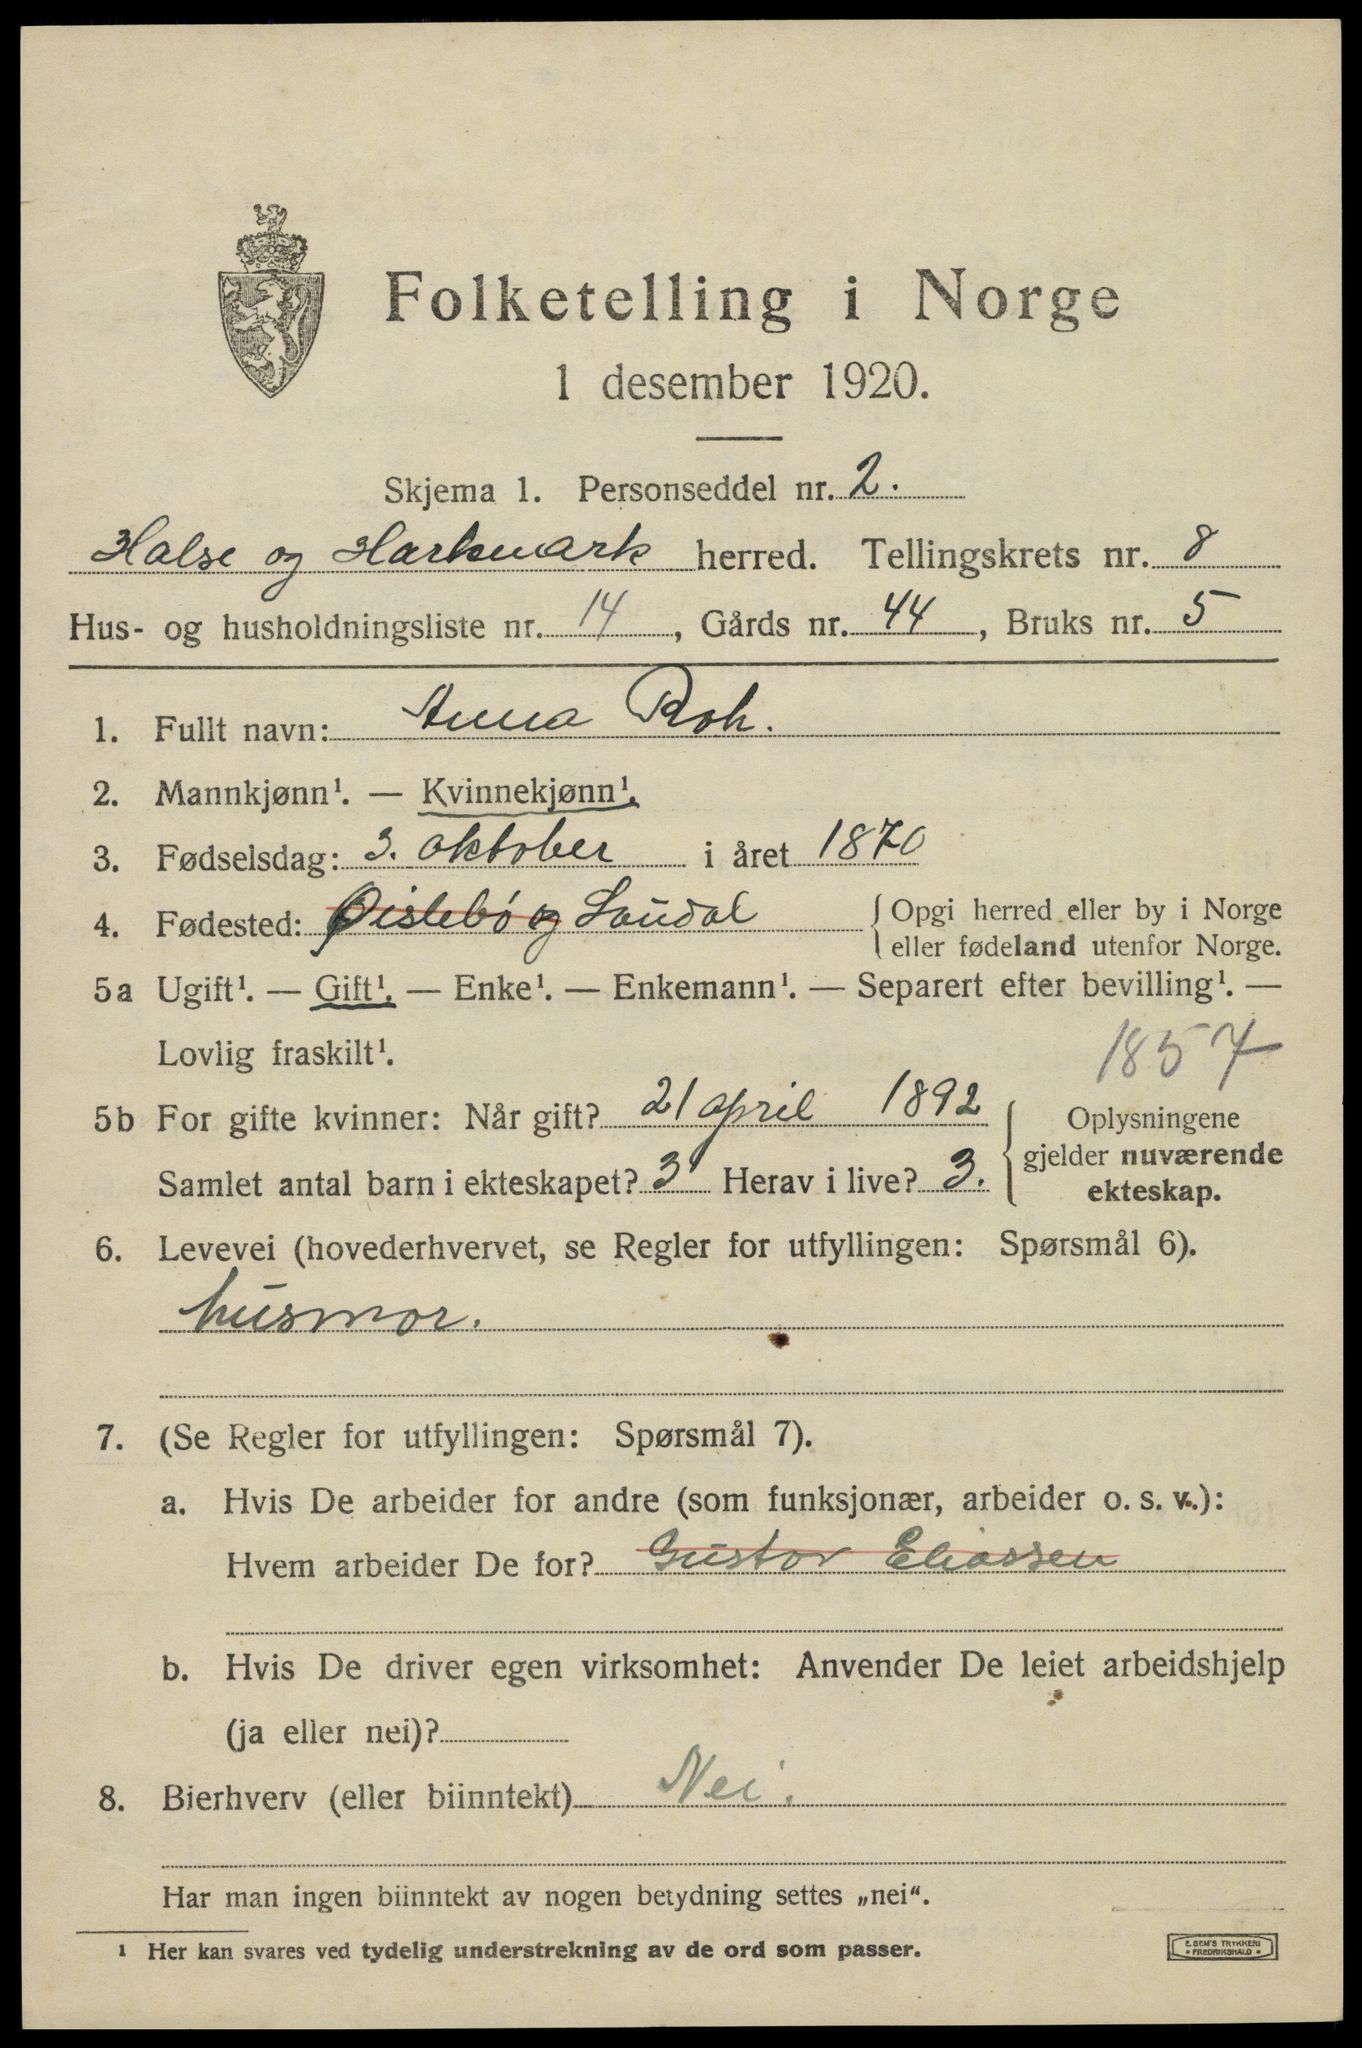 Folketelling i Norge
1 desember 1920.
Skjema 1. Personseddel nr. 2.
Halse og Harkmark herred. Tellingskrets nr. 8
Hus- og husholdningsliste nr. 14, Gårds nr. 44, Bruks nr. 5
1. Fullt navn: Anna Roh.
2. Mannkjønn¹. — Kvinnekjønn¹.
3. Fødselsdag: 3. oktober i året 1870
4. Fødested: Øislebö og Laudal {Opgi herred eller by i Norge
eller fødeland utenfor Norge.
5a Ugift¹. — Gift¹. — Enke¹. — Enkemann¹. — Separert efter bevilling¹. —
Lovlig fraskilt¹. 1857
5b For gifte kvinner: Når gift? 21 april 1892 { Oplysningene
Samlet antal barn i ekteskapet? 3 Herav i live? 3. gjelder nuværende
ekteskap.
6. Levevei (hovederhvervet, se Regler for utfyllingen: Spørsmål 6).
husmor.
7. (Se Regler for utfyllingen: Spørsmål 7).
a. Hvis De arbeider for andre (som funksjonær, arbeider o. s. v.):
Hvem arbeider De for? Gustav Eliassen
b. Hvis De driver egen virksomhet: Anvender De leiet arbeidshjelp
(ja eller nei)?
8. Bierhverv (eller biinntekt) Nei.
Har man ingen biinntekt av nogen betydning settes „nei“.
¹ Her kan svares ved tydelig understrekning av de ord som passer.
E. SEM'S TRYKKERI
* FREDRIKSHALD *